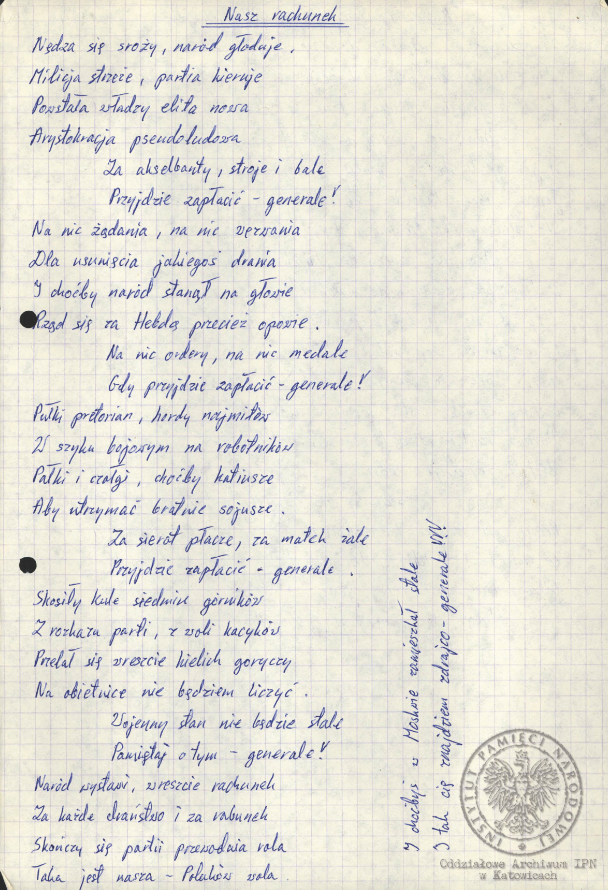 Nasz rachunek
Nędza się sroży, naród głoduje.
Milicja strzeże, partia kieruje
Powstała władzy elita nowa
Arystokracja pseudoludowa
Za akselbanty, stroje i bale
Przyjdzie zapłacić - generale!
Na nic żądania, na nic wezwania
Dla usunięcia jakiegoś drania
I choćby naród stanął na głowie
Rząd się za Hebdą przecież opowie.
Na nic ordery, na nic medale
Gdy przyjdzie zapłacić - generale!
Pułki pretorian, hordy najmitów
W szyku bojowym na robotników
Pałki i czołgi, choćby katiusze
Aby utrzymać bratnie sojusze.
Za sierot płacze, za matek żale
Przyjdzie zapłacić - generale.
Skosiły kule siedmiu górników
Z rozkazu parti, z woli kacyków
Przelał się wreszcie kielich goryczy
Na obietnice nie będziem liczyć.
Wojenny stan nie będzie stale
Pamiętaj o tym - generale!
Naród wystawi, wreszcie rachunek
Za każde draństwo i za rabunek
Skończy się partii przewodnia rola
Taka jest nasza - Polaków wola.
I choćbyś w Moskwie zamieszkał stale
I tak cię znajdziem zdrajco - generale!!!
INSTYTUT PAMIĘCI NARODOWEJ
Oddziałowe Archiwum IPN
w Katowicach